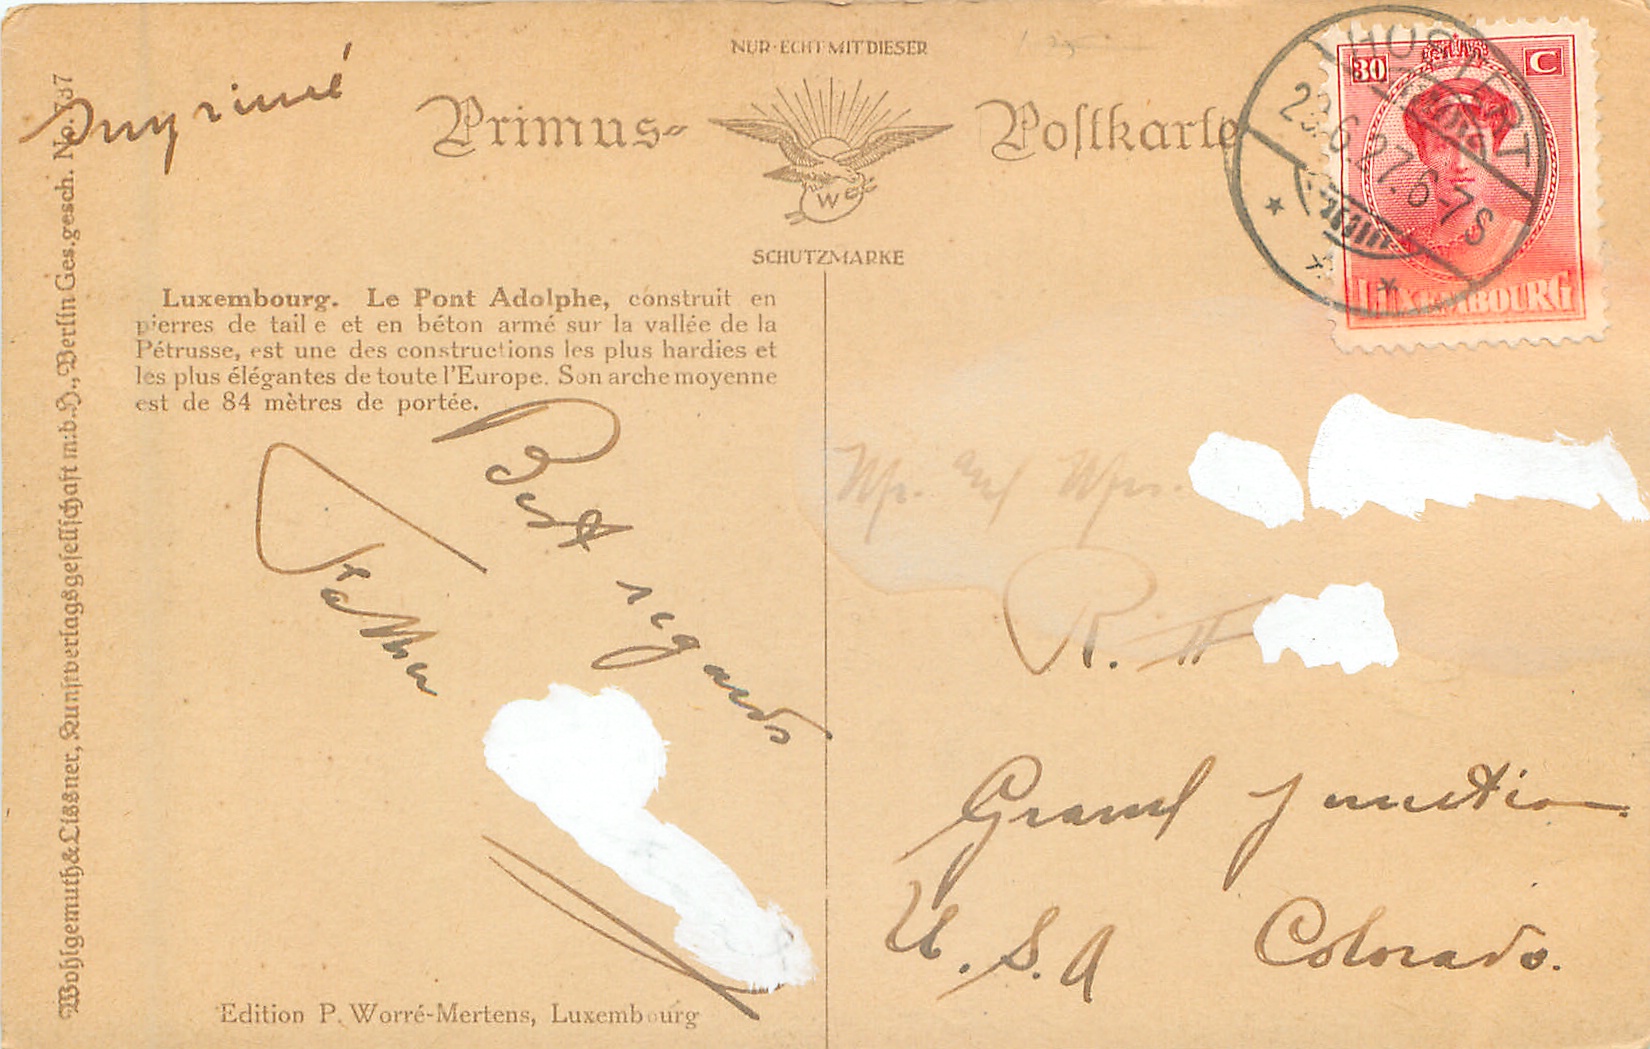 Imprimé
NUR ECHT MIT DIESER
Primus-
Postkarte
W
SCHUTZMARKE
30 C
LUXEMBOURG
23.6.27.6-7S
Luxembourg. Le Pont Adolphe, construit en
pierres de taille et en béton armé sur la vallée de la
Pétrusse, est une des constructions les plus hardies et
les plus élégantes de toute l'Europe. Son arche moyenne
est de 84 mètres de portée.
Best regards
Mr. and Mrs.
R. #
Grand Junction.
U.S.A Colorado.
Edition P. Worré-Mertens, Luxembourg
Wohlgemuth & Lissner, Kunstverlagsgesellschaft m.b.H., Berlin Ges. gesch. No.